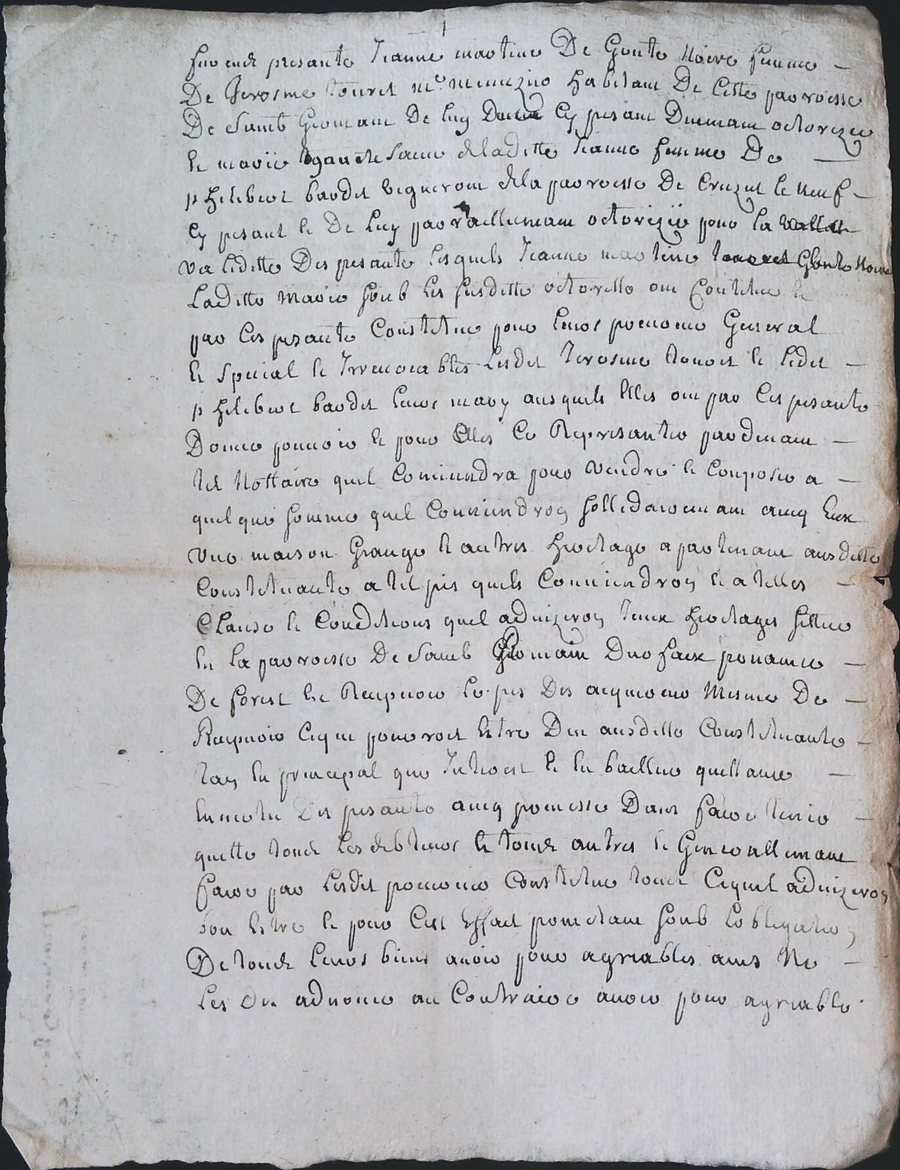 furent presante Jeanne martine De Goutte Noire femme
De Jerosme touret me menuzier habitant De Cette parroisse
De Saint Gromain De luy Deue Cy presant Dumant octorizee
le marie Sœur de laditte Jeanne femme De
philibert baudet vigneron de la parroisse De Cruzet le neuf
Cy presant le De luy parraillemant octorizee pour la
validitte Des presante lesquels Jeanne martine Goutte Noire
laditte marie soub les susditte octorille ont Constitue le
par Ces presante Constitue pour leurs procureur General
le Special le Irrevocables lesdit Jerosme touret le ledit
philibert baudet leurs mary ausquels Elles ont par Ces presante
Donne pouvoir le pour Elles le Represanter pardevant
tel Nottaire quil Conviendra pour vendre le Composer a
quelque somme quil Conviendron sollidairemant avecq Eux
une maison Grange le autres heritage apartenant ausditte
Constituante a tel pris quils Conviendron le a telles
Clause le Conditions quil advizeron Iceux heritages sittue
en la parroisse De Saint Gromain Dur faix pourance
De forest le Recepvoir le pris Des acquereur mesme De
Recepvoir Ce qui pourroit Estre Deu ausditte Constituante
tan en principal que Interest le en bailler quittance
En vertu Des presante avecq promesse Dans faire tenir
quitte tous les debteurs le tous autres le Generallemant
faire par lesdit procureur Constitue tout Ce quil advizeron
bon Estre le pour Cest Effaet prometant soub lobligation
De tous leurs biens avoir pour agreables sans Ne
les Des advouer au Contraire avoir pour agreable